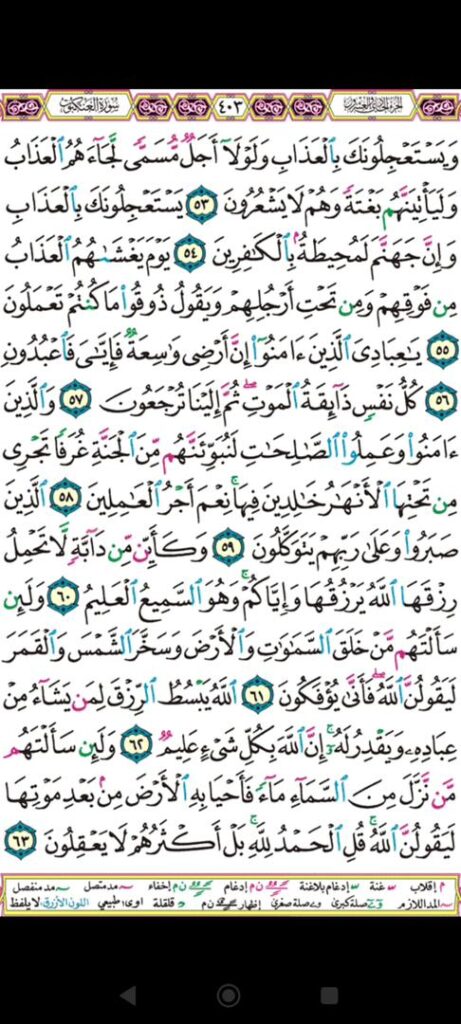 الجزء الحادي والعشرون ٤٠٣ سورة العنكبوت
وَيَسْتَعْجِلُونَكَ بِٱلْعَذَابِ وَلَوْلَآ أَجَلٌ مُّسَمًّى لَّجَآءَهُمُ ٱلْعَذَابُ
وَلَيَأْتِيَنَّهُم بَغْتَةً وَهُمْ لَا يَشْعُرُونَ ٥٣ يَسْتَعْجِلُونَكَ بِٱلْعَذَابِ
وَإِنَّ جَهَنَّمَ لَمُحِيطَةٌۢ بِٱلْكَٰفِرِينَ ٥٤ يَوْمَ يَغْشَىٰهُمُ ٱلْعَذَابُ
مِن فَوْقِهِمْ وَمِن تَحْتِ أَرْجُلِهِمْ وَيَقُولُ ذُوقُوا۟ مَا كُنتُمْ تَعْمَلُونَ
٥٥ يَٰعِبَادِىَ ٱلَّذِينَ ءَامَنُوٓا۟ إِنَّ أَرْضِى وَٰسِعَةٌ فَإِيَّٰىَ فَٱعْبُدُونِ
٥٦ كُلُّ نَفْسٍ ذَآئِقَةُ ٱلْمَوْتِ ۖ ثُمَّ إِلَيْنَا تُرْجَعُونَ ٥٧ وَٱلَّذِينَ
ءَامَنُوا۟ وَعَمِلُوا۟ ٱلصَّٰلِحَٰتِ لَنُبَوِّئَنَّهُم مِّنَ ٱلْجَنَّةِ غُرَفًا تَجْرِى
مِن تَحْتِهَا ٱلْأَنْهَٰرُ خَٰلِدِينَ فِيهَا ۚ نِعْمَ أَجْرُ ٱلْعَٰمِلِينَ ٥٨ ٱلَّذِينَ
صَبَرُوا۟ وَعَلَىٰ رَبِّهِمْ يَتَوَكَّلُونَ ٥٩ وَكَأَيِّن مِّن دَآبَّةٍ لَّا تَحْمِلُ
رِزْقَهَا ٱللَّهُ يَرْزُقُهَا وَإِيَّاكُمْ ۚ وَهُوَ ٱلسَّمِيعُ ٱلْعَلِيمُ ٦٠ وَلَئِن
سَأَلْتَهُم مَّنْ خَلَقَ ٱلسَّمَٰوَٰتِ وَٱلْأَرْضَ وَسَخَّرَ ٱلشَّمْسَ وَٱلْقَمَرَ
لَيَقُولُنَّ ٱللَّهُ ۖ فَأَنَّىٰ يُؤْفَكُونَ ٦١ ٱللَّهُ يَبْسُطُ ٱلرِّزْقَ لِمَن يَشَآءُ مِنْ
عِبَادِهِۦ وَيَقْدِرُ لَهُۥٓ ۚ إِنَّ ٱللَّهَ بِكُلِّ شَىْءٍ عَلِيمٌ ٦٢ وَلَئِن سَأَلْتَهُم
مَّن نَّزَّلَ مِنَ ٱلسَّمَآءِ مَآءً فَأَحْيَا بِهِ ٱلْأَرْضَ مِنۢ بَعْدِ مَوْتِهَا
لَيَقُولُنَّ ٱللَّهُ ۚ قُلِ ٱلْحَمْدُ لِلَّهِ ۚ بَلْ أَكْثَرُهُمْ لَا يَعْقِلُونَ ٦٣
م إقلاب غنة إدغام بلاغنة ن م إدغام ن م إخفاء مد متصل مد منفصل
المد اللازم صلة كبرى صلة صغرى إظهار ن م قلقلة اوى: طبيعي اللون الأزرق: لا يلفظ